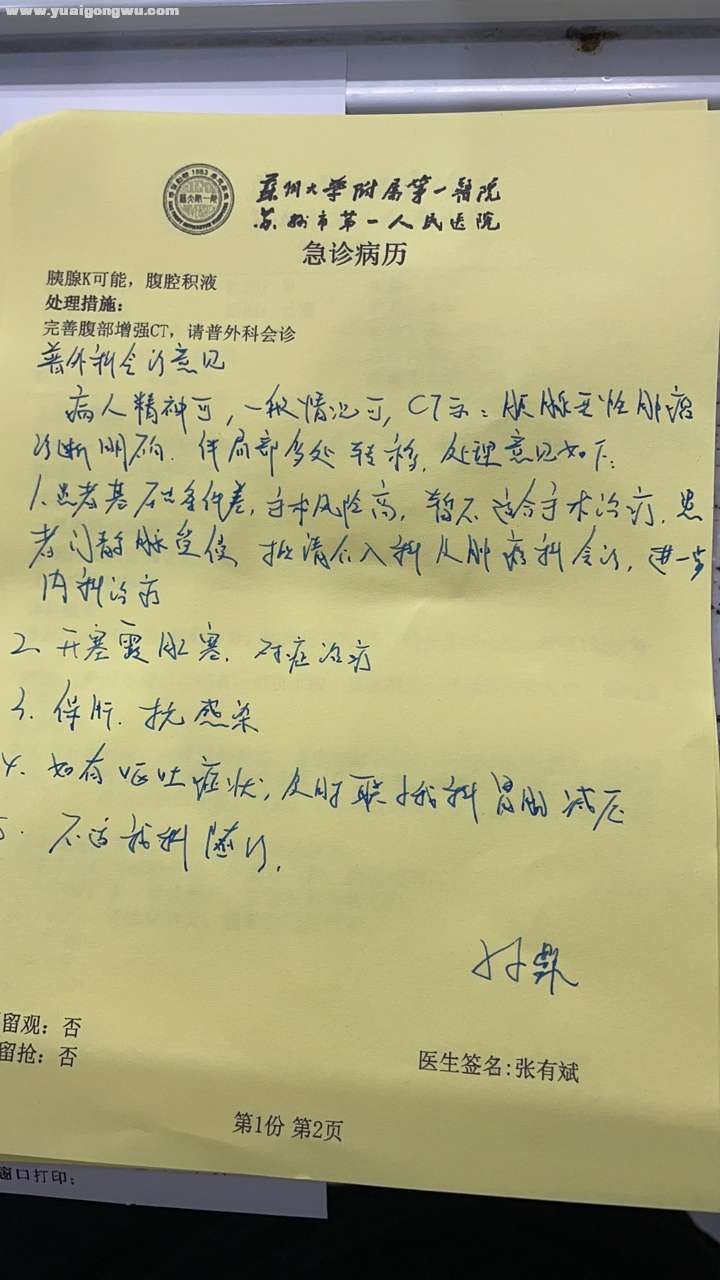 www.yuaigongwu.com
蘇州大学附属第一醫院
苏州市第一人民医院
急诊病历
胰腺K可能，腹腔积液
处理措施：
完善腹部增强CT，请普外科会诊
普外科会诊意见
病人精神可，一般情况可，CT示：胰腺恶性肿瘤
诊断明确．伴局部多处转移．处理意见如下：
1.患者基础条件差，手术风险高，暂不适合手术治疗．患
者门静脉受侵 拟请介入科及肿瘤科会诊，进一步
内科治疗
2．开塞露肛塞．对症治疗
3．保肝．抗感染
4．如有呕吐症状，及时联我科胃肠减压
不适我科随诊．
留观：否
留抢：否
医生签名:张有斌
第1份 第2页
窗口打印：